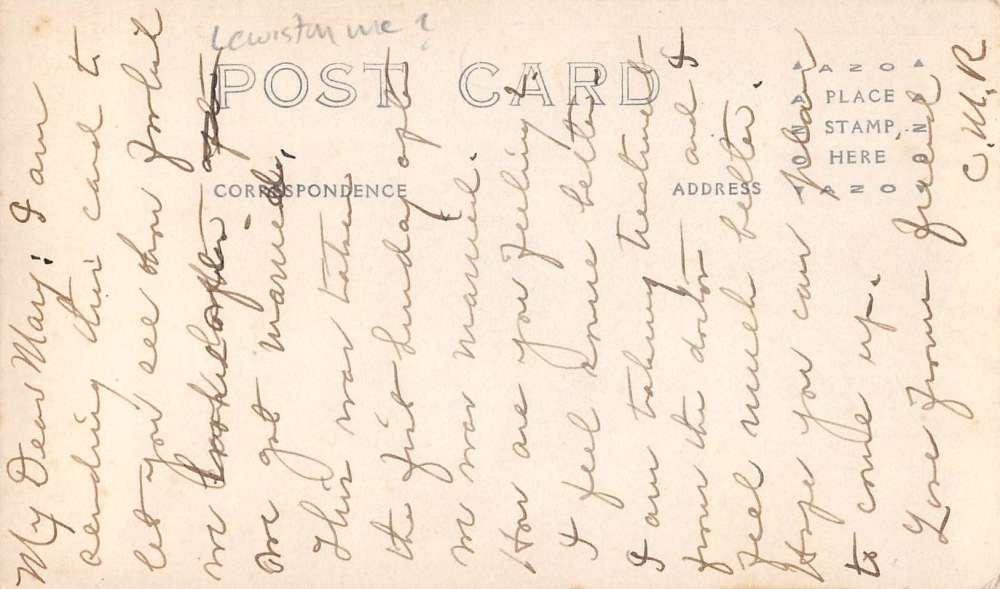 Lewiston me?
POST CARD
CORRESPONDENCE
ADDRESS
AZO
PLACE
STAMP
HERE
AZO
My Dear Mary: I am
sending this card to
let you see how foolish
we looked after
we got married.
This was taken
the first Sunday after
we was married.
How are you feeling?
I feel some better
I am taking treatment
from the doctor and I
feel much better.
Hope you can plan
to come up.
Love from friend
C.M.R